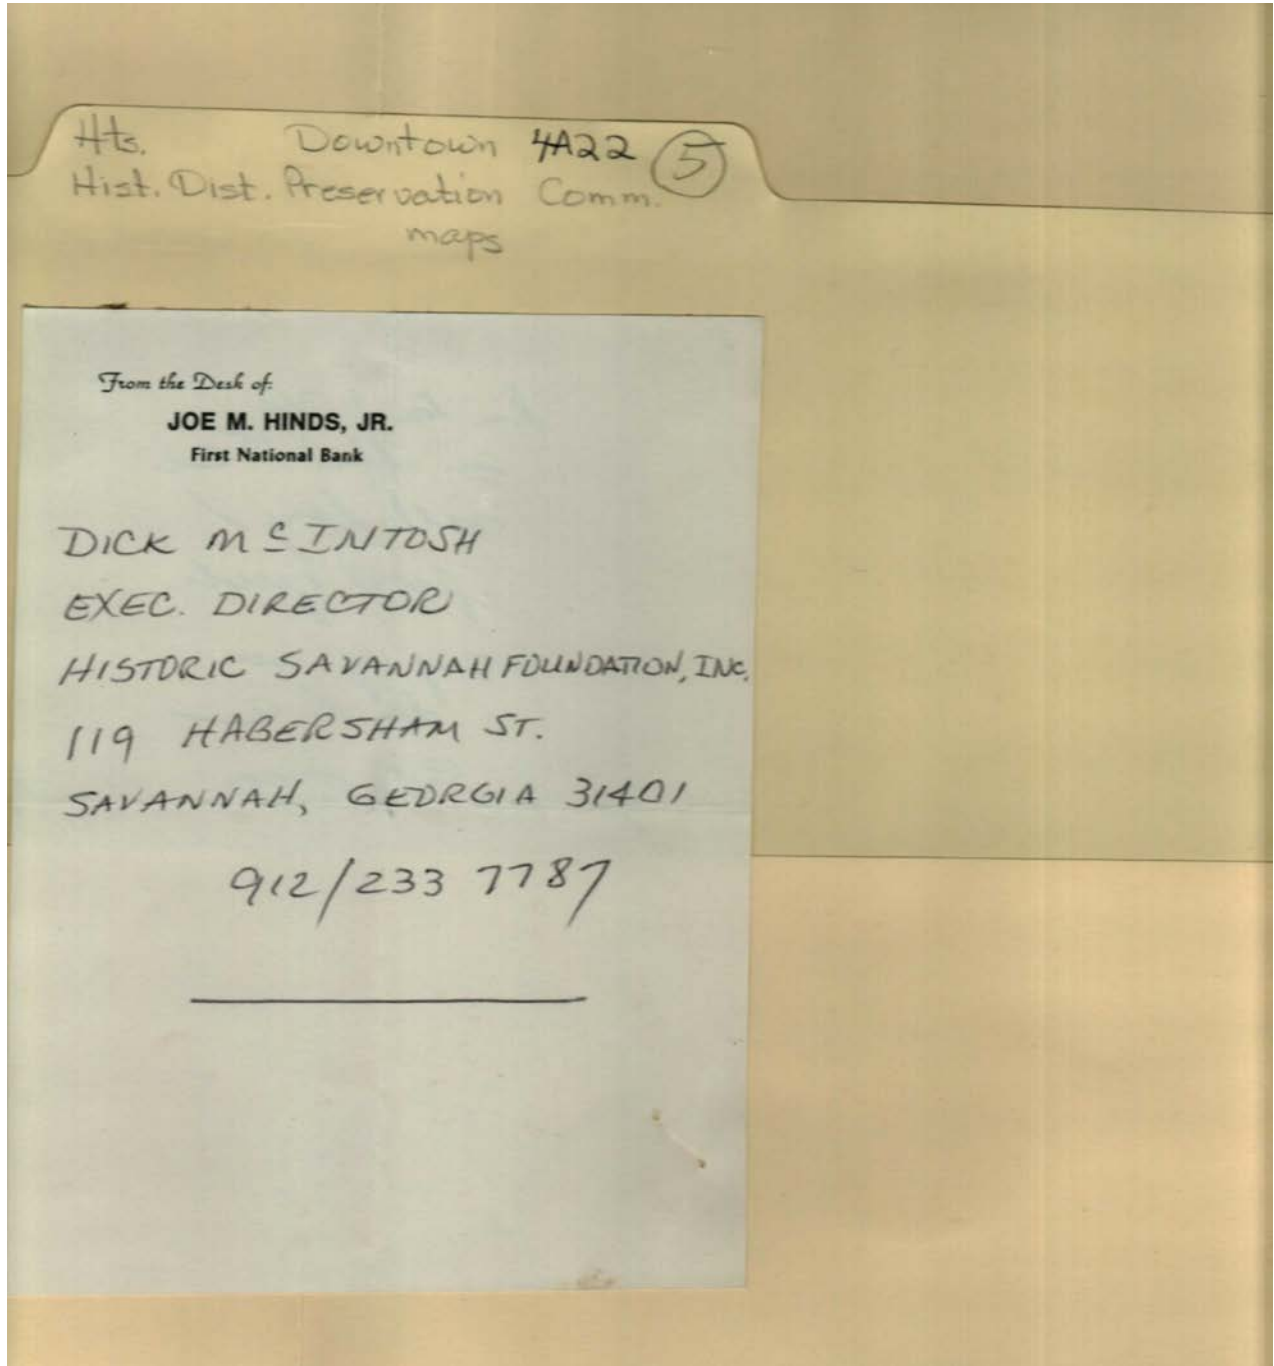 Hts. Downtown 4A22 5
Hist. Dist. Preservation Comm.
maps
From the Desk of:
JOE M. HINDS, JR.
First National Bank
DICK McINTOSH
EXEC. DIRECTOR
HISTORIC SAVANNAH FOUNDATION, INC.
119 HABERSHAM ST.
SAVANNAH, GEORGIA 31401
912/233 7787